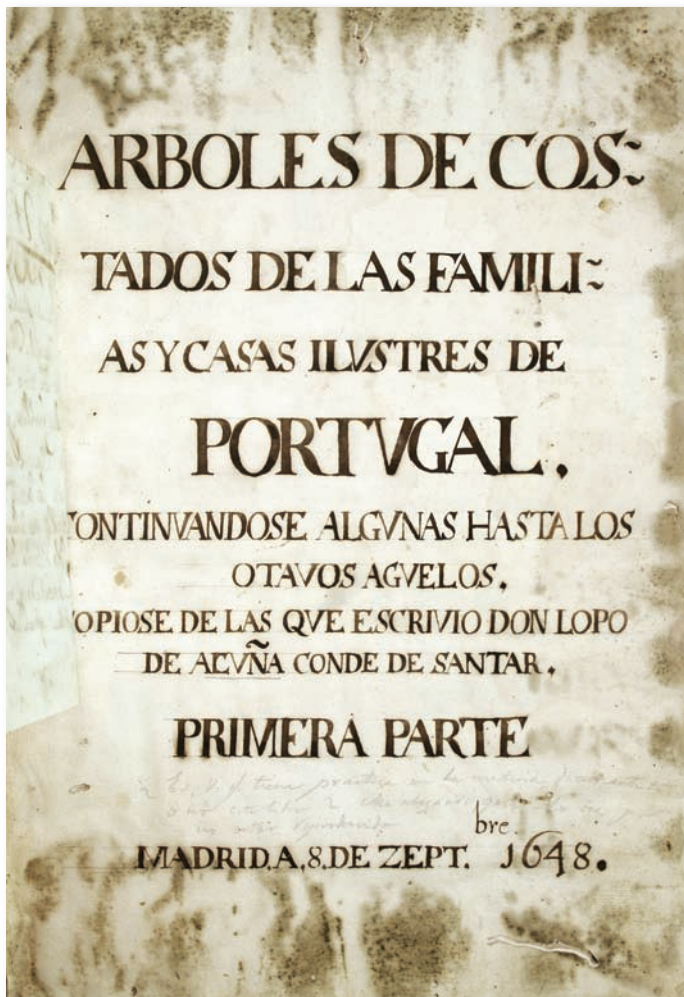 ARBOLES DE COS~
TADOS DE LAS FAMILI~
AS Y CASAS ILVSTRES DE
PORTVGAL.
CONTINVANDOSE ALGVNAS HASTA LOS
OTAVOS AGVELOS.
COPIOSE DE LAS QVE ESCRIVIO DON LOPO
DE ACVÑA CONDE DE SANTAR.
PRIMERA PARTE
MADRID.A.8.DE ZEPT.bre 1648.